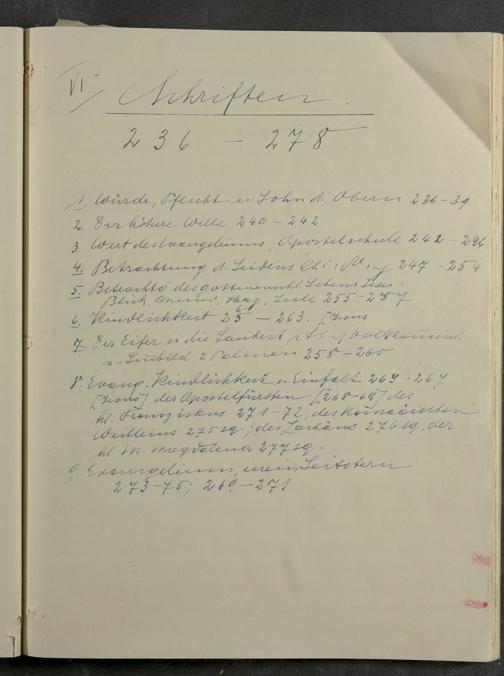 VI/ Schriften.
236 - 278
1. Würde, Pflicht u. Lohn d. Obern 236-39
2. Der höhere Wille 240-242
3. Wert des Evangeliums, Apostelschule 242-246
4. Betrachtung d. Leidens Chi: 247-254
5. Betrachtg des gottmenschl. Lebens Jesu:
Blick, Seele 255-257
6. Kindlichkeit - 263. Jesus
7. Der Eifer u. die Sanftmut
Sinnbild 2 Palmen 258-260
8. Evang. Kindlichkeit u. Einfalt 263-267
[Jesus] der Apostelfürsten [268-69] des
hl. Franziskus 271-72, des kanaäischen
Weibleins 275 sq.; des Zachäus 276 sq, der
hl. M. Magdalena 277 sq.
9. Evangelium, mein Leitstern
273-75; 269-271